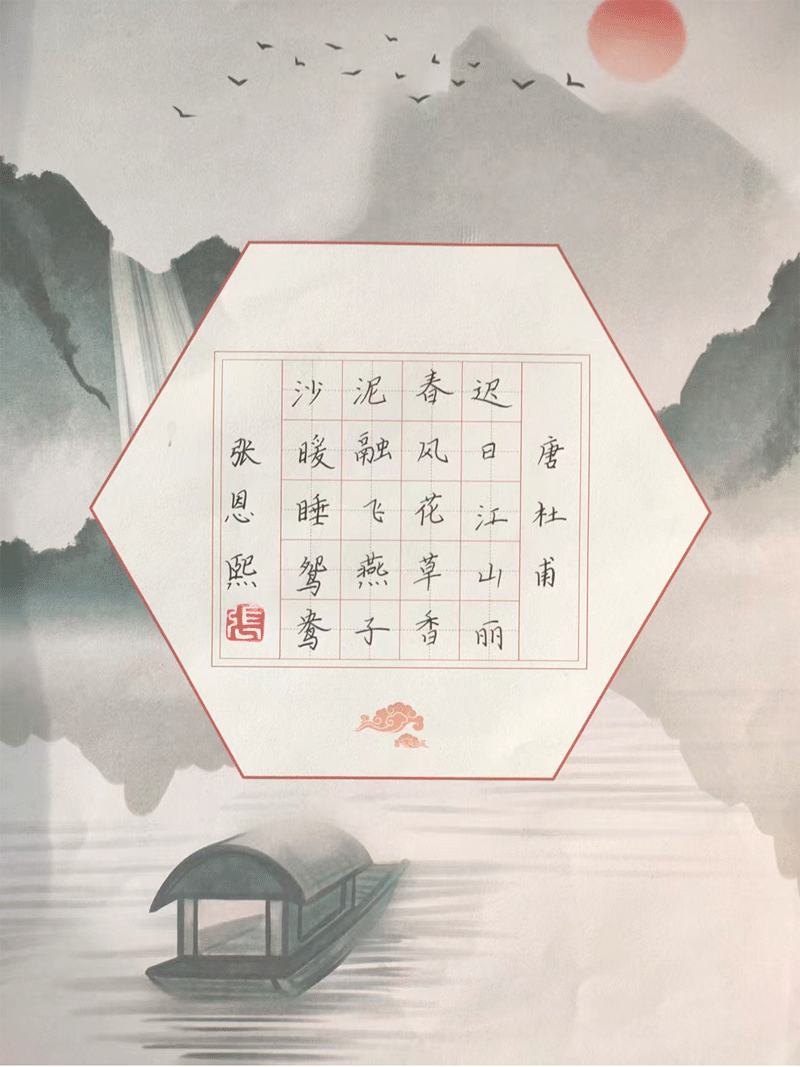 唐杜甫
迟日江山丽
春风花草香
泥融飞燕子
沙暖睡鸳鸯
张恩熙
張